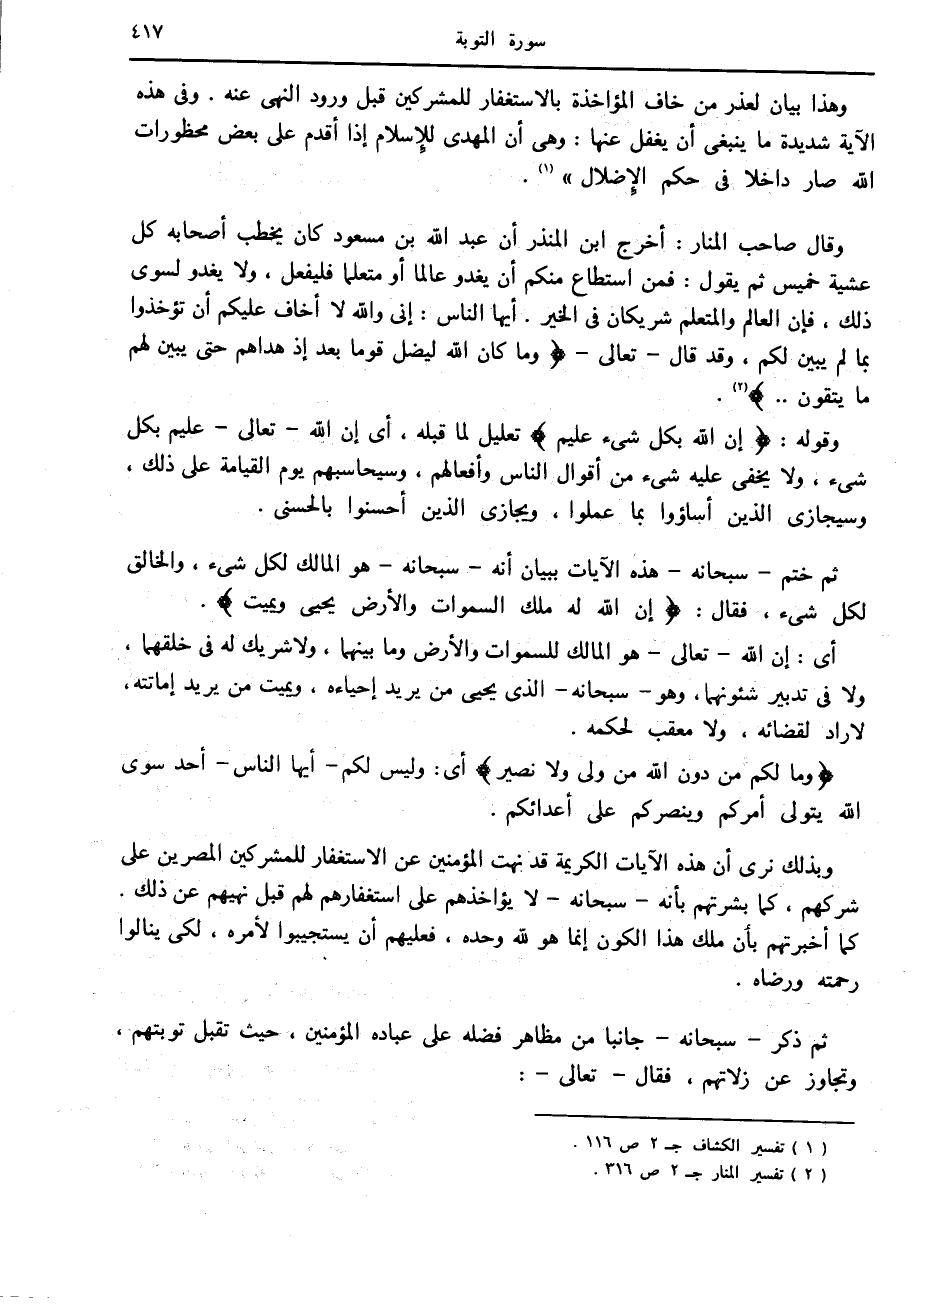 سورة التوبة
٤١٧
وهذا بيان لعذر من خاف المؤاخذة بالاستغفار للمشركين قبل ورود النهى عنه . وفى هذه
الآية شديدة ما ينبغى أن يغفل عنها : وهى أن المهدى للإسلام إذا أقدم على بعض محظورات
الله صار داخلا فى حكم الإضلال » (١) .
وقال صاحب المنار : أخرج ابن المنذر أن عبد الله بن مسعود كان يخطب أصحابه كل
عشية خميس ثم يقول : فمن استطاع منكم أن يغدو عالما أو متعلما فليفعل ، ولا يغدو لسوى
ذلك ، فإن العالم والمتعلم شريكان فى الخير . أيها الناس : إنى والله لا أخاف عليكم أن تؤخذوا
بما لم يبين لكم ، وقد قال – تعالى – ﴿ وما كان الله ليضل قوما بعد إذ هداهم حتى يبين لهم
ما يتقون .. ﴾ (٢) .
وقوله : ﴿ إن الله بكل شىء عليم ﴾ تعليل لما قبله ، أى إن الله – تعالى – عليم بكل
شىء ، ولا يخفى عليه شىء من أقوال الناس وأفعالهم ، وسيحاسبهم يوم القيامة على ذلك ،
وسيجازى الذين أساؤوا بما عملوا ، ويجازى الذين أحسنوا بالحسنى .
ثم ختم – سبحانه – هذه الآيات ببيان أنه – سبحانه – هو المالك لكل شىء ، والخالق
لكل شىء ، فقال : ﴿ إن الله له ملك السموات والأرض يحيى ويميت ﴾ .
أى : إن الله – تعالى – هو المالك للسموات والأرض وما بينهما ، ولاشريك له فى خلقهما ،
ولا فى تدبير شئونهما، وهو – سبحانه – الذى يحيى من يريد إحياءه ، ويميت من يريد إماتته،
لاراد لقضائه ، ولا معقب لحكمه .
﴿وما لكم من دون الله من ولى ولا نصير ﴾ أى: وليس لكم – أيها الناس – أحد سوى
الله يتولى أمركم وينصركم على أعدائكم .
وبذلك نرى أن هذه الآيات الكريمة قد نهت المؤمنين عن الاستغفار للمشركين المصرين على
شركهم ، كما بشرتهم بأنه – سبحانه – لا يؤاخذهم على استغفارهم لهم قبل نهيهم عن ذلك .
كما أخبرتهم بأن ملك هذا الكون إنما هو لله وحده ، فعليهم أن يستجيبوا لأمره ، لكى ينالوا
رحمته ورضاه .
ثم ذكر – سبحانه – جانبا من مظاهر فضله على عباده المؤمنين ، حيث تقبل توبتهم ،
وتجاوز عن زلاتهم ، فقال – تعالى – :
( ١ ) تفسير الكشاف جـ ٢ ص ١١٦ .
( ٢ ) تفسير المنار جـ ٢ ص ٣١٦ .